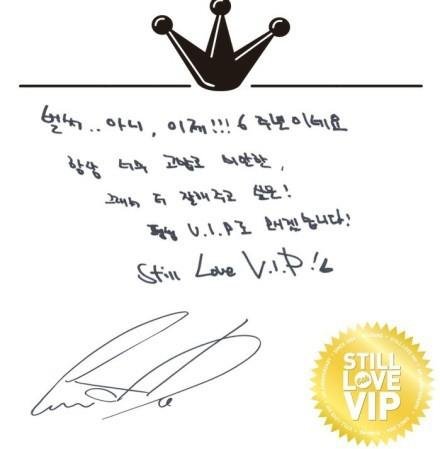 벌써.. 아니, 이제!!! 6 주년이네요
항상 너무 고맙고 미안한,
그래서 더 잘해주고 싶은!
평생 V.I.P로 모시겠습니다!
Still Love V.I.P!
STILL
LOVE
VIP